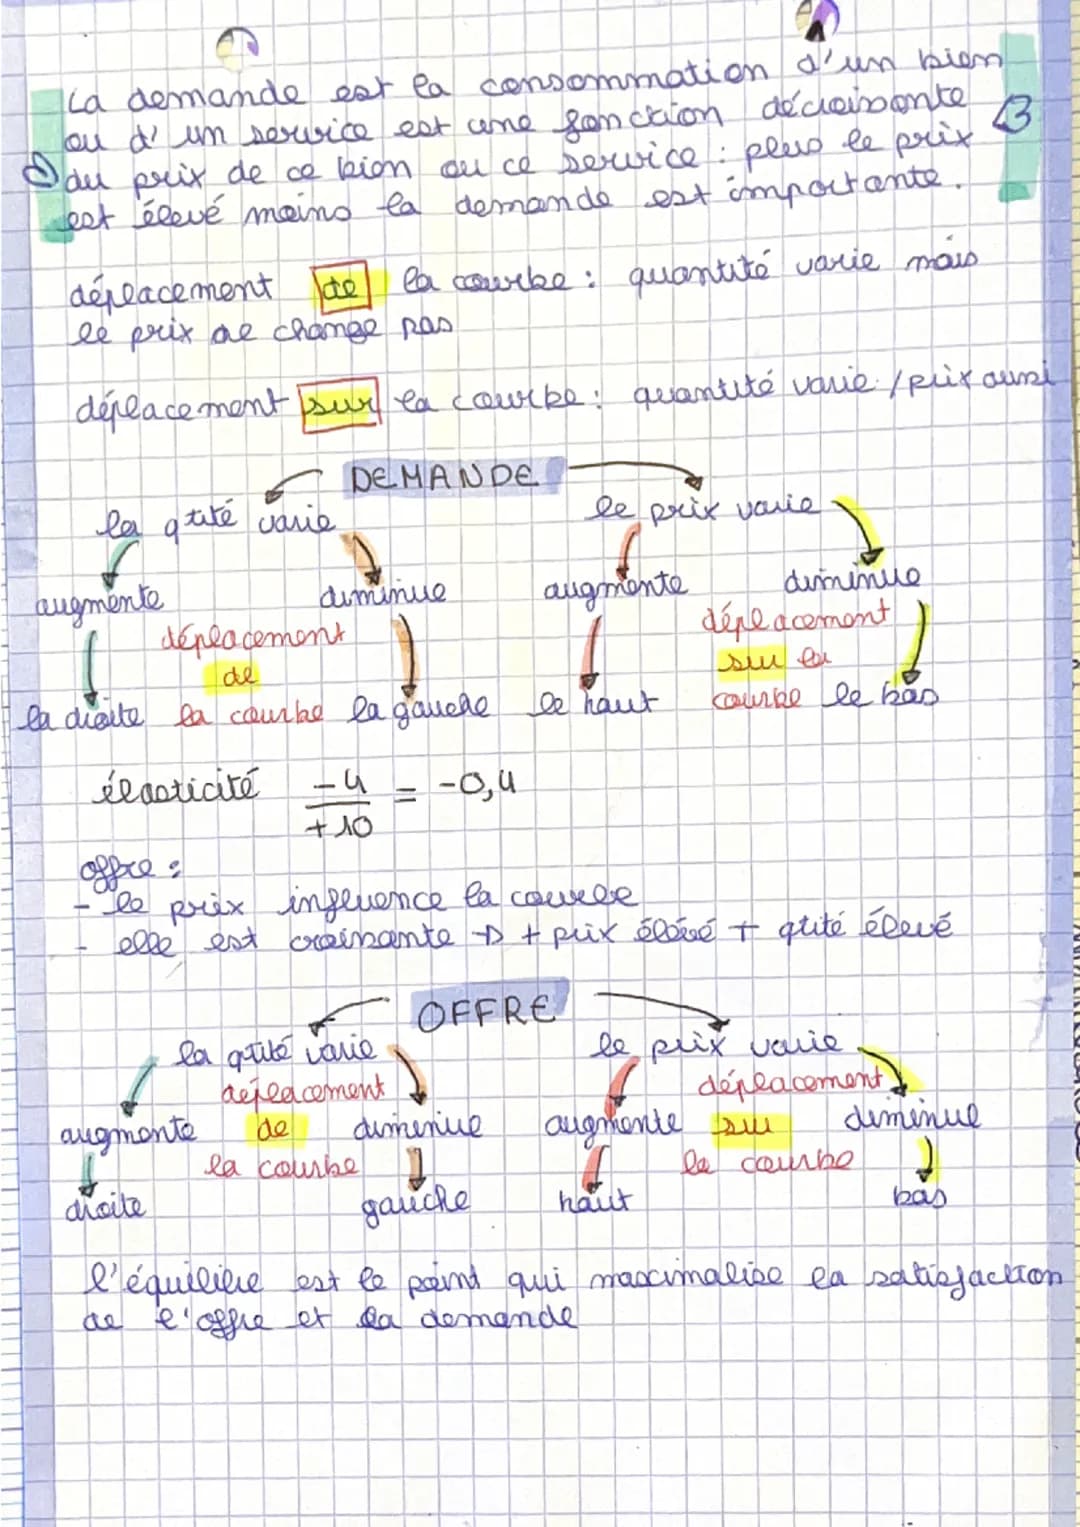 La demande est la consommation d'un bien
ou d'un service est une fonction décroissante
du prix de ce bien ou ce service : plus le prix
est élevé moins la demande est importante.
déplacement de la courbe : quantité varie mais
le prix ne change pas
déplacement sur la courbe : quantité varie / prix aussi
DEMANDE
la qtité varie le prix varie
augmente diminue augmente diminue
déplacement déplacement
de sur la
la droite la courbe la gauche le haut courbe le bas
élasticité -4 = -0,4
+10
offre :
- le prix influence la courbe
- elle est croissante → + prix élévé + qtité élevé
OFFRE
la qtité varie le prix varie
déplacement déplacement
augmente de diminue augmente sur diminue
la courbe la courbe
droite gauche haut bas
l'équilibre est le point qui maximalise la satisfaction
de l'offre et la demande